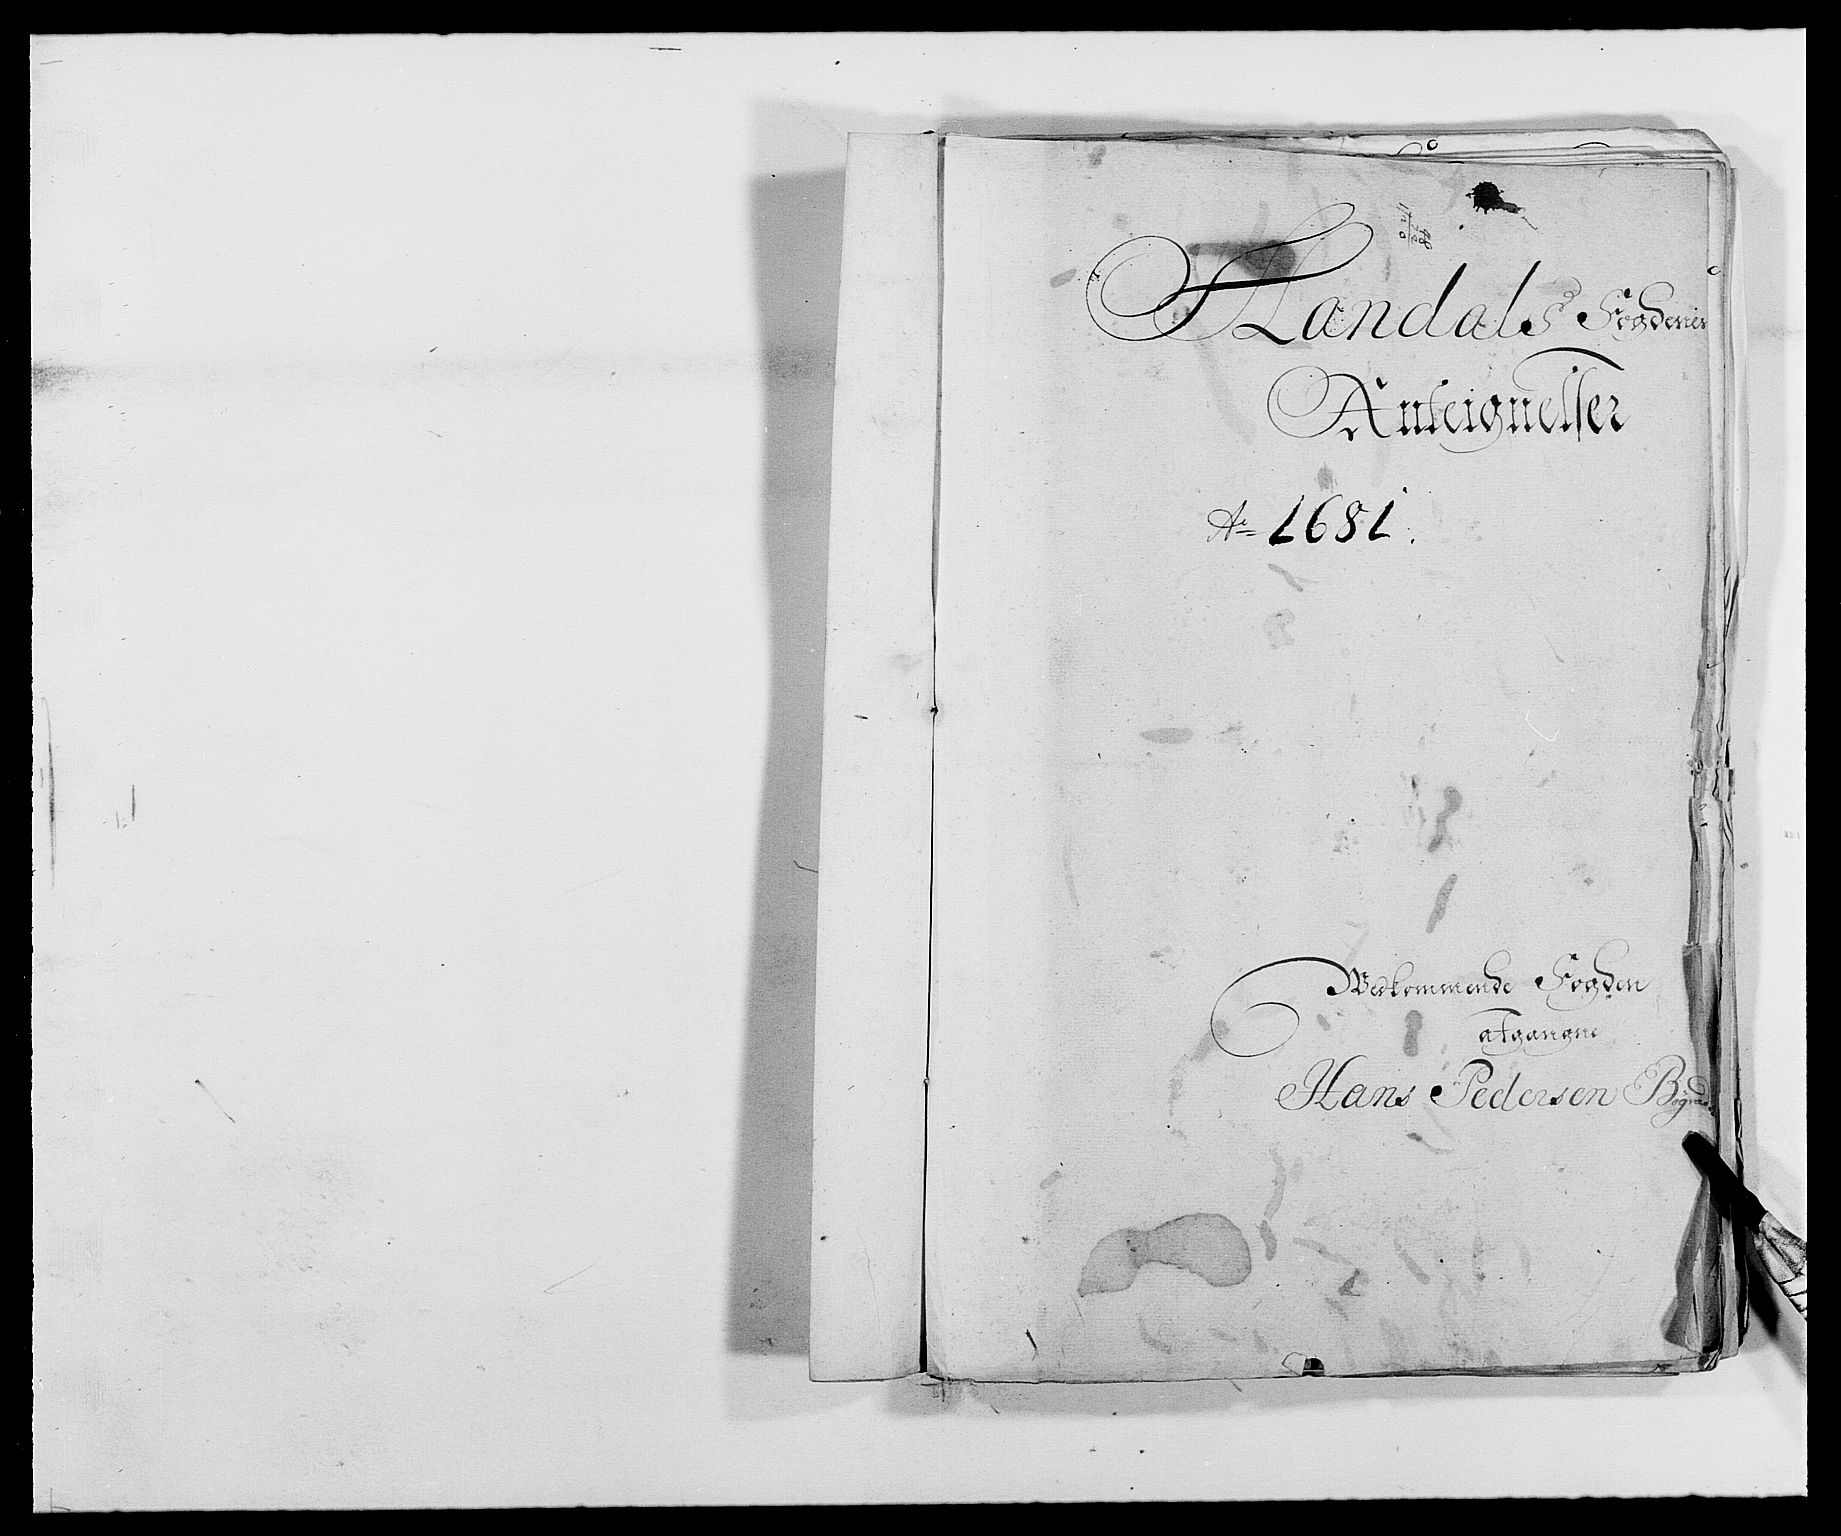 Mandals Fogderies
Anteignelser
Ao 1681.
Vedkommende Fogden
afgangne
Hans Pedersen